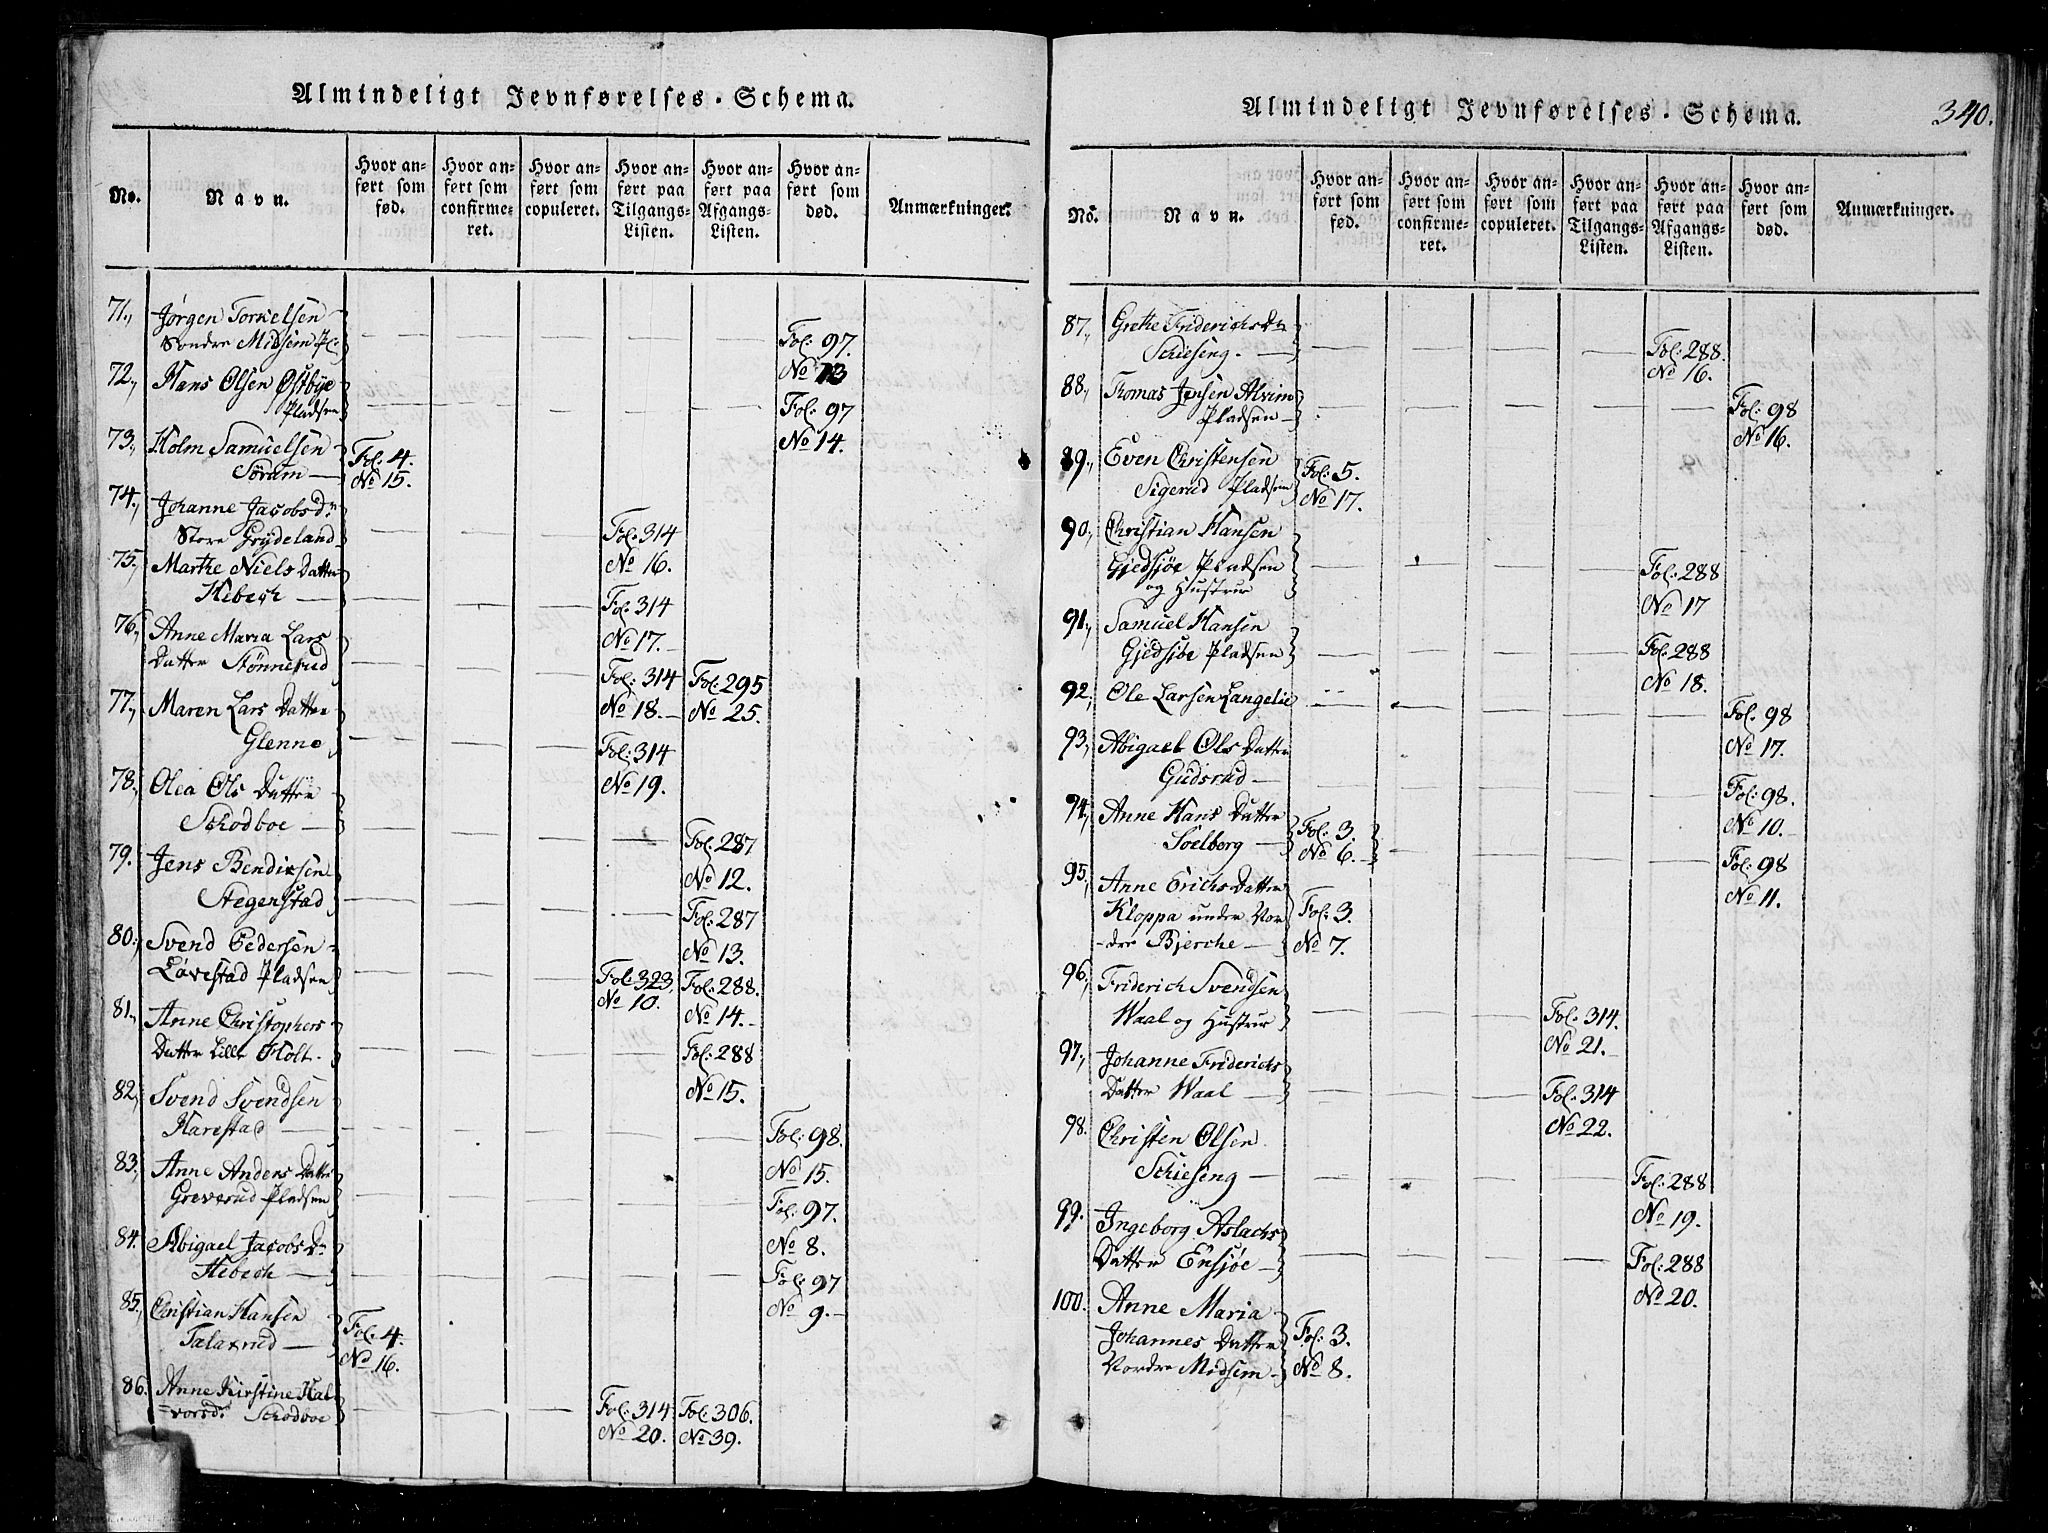 Almindeligt Jevnførelses-Schema.
No.
Navn.
Hvor an-
ført som
fød.
Hvor an-
ført som
confirme-
ret.
Hvor an-
ført som
copuleret.
Hvor an-
ført paa
Tilgangs-
Listen.
Hvor an-
ført paa
Afgangs-
Listen.
Hvor an-
ført som
død.
Anmærkninger.
71., Jørgen Torkelsen
Søndre Midsem Pl:
Fol: 97.
No 13
72., Hans Olsen Østbye
Pladsen
Fol: 97
No 14.
73., Holm Samuelsen
Sørum
Fol: 4.
No 15.
74., Johanne Jacobs Dr
Store Grydeland
Fol: 314
No 16.
75., Marthe Niels Datter
Hebech
Fol: 314
No 17.
76., Anne Maria Lars
Datter Stønnerud
Fol: 314 Fol: 295
No 18. No 25.
77., Maren Lars Datter
Glenne
Fol: 314
No 19.
78., Olea Ols Datter
Schodboe
Fol: 287
No 12.
79. Jens Bendixsen
Stegenstad
Fol: 287
No 13.
80., Svend Pedersen
Løvestad Pladsen
Fol: 323. Fol: 288.
No 10. No 14.
81., Anne Christophers
Datter Lille Holt.
Fol: 288
No 15.
82., Svend Svendsen
Harestad
Fol: 98.
No 15.
83., Anne Anders Datter
Greverud Pladsen
Fol: 97.
No 8.
84. Abigael Jacobs Dr
Hebech
Fol: 97
No 9.
85., Christian Hansen
Talaxrud
Fol: 4
No 16.
86. Anne Kirstine Hal
=vorsd: Schodboe
Fol: 314 Fol: 306.
No 20. No 39.
Almindeligt Jevnførelses-Schema.
340.
No.
Navn.
Hvor an-
ført som
fød.
Hvor an-
ført som
confirme-
ret.
Hvor an-
ført som
copuleret.
Hvor an-
ført paa
Tilgangs-
Listen.
Hvor an-
ført paa
Afgangs-
Listen.
Hvor an-
ført som
død.
Anmærkninger.
87., Grethe Friderichs Dr
Schieseng.
Fol: 288.
No 16.
88., Thomas Jensen Alvim
Pladsen
Fol: 98
No 16.
89., Even Christensen
Sigerud Pladsen
Fol: 5.
No 17.
90., Christian Hansen
Gjedsjøe Pladsen
og Hustrue
Fol: 288
No 17
91., Samuel Hansen
Gjedsjøe Pladsen
Fol: 288
No 18.
92., Ole Larsen Langelie
Fol: 98
No 17.
93., Abigael Ols Datter
Gudsrud
Fol: 98.
No 10.
94., Anne Hans Datter
Soelborg
Fol: 3.
No 6.
Fol: 98
No 11.
95., Anne Erichs Datter
Kloppa under Nor
-dre Bjerche
Fol: 3.
No 7.
96., Friderich Svendsen
Waal og Hustrue
Fol: 314.
No 21.
97., Johanne Friderichs
Datter Waal
Fol: 314
No 22.
98. Christen Olsen
Schieseng
Fol: 288
No 19.
99. Ingeborg Aslachs
Datter Ensjøe
Fol: 288
No 20.
100. Anne Maria
Johannes Datter
Nordre Midsem
Fol: 3.
No 8.